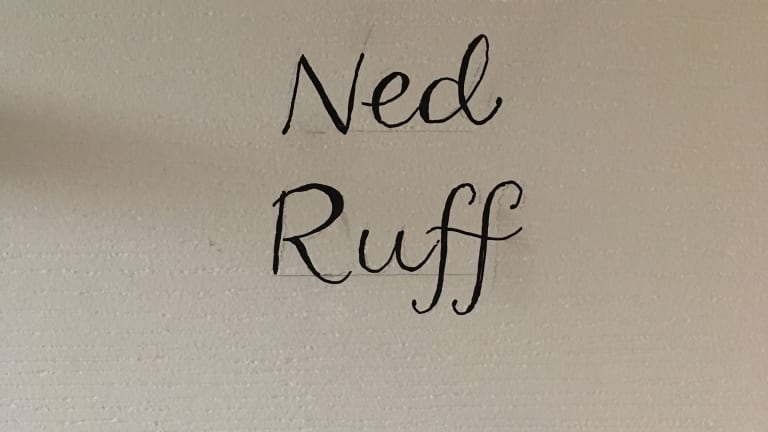 Ned
Ruff